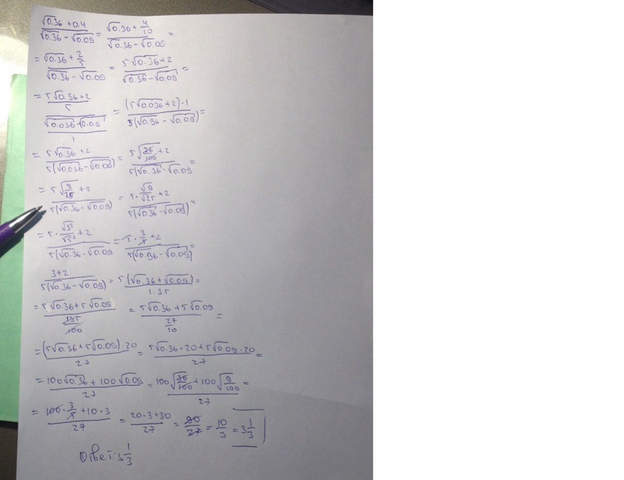 (√0.36 + 0.4)/(√0.36 - √0.09) = (√0.36 + 4/10)/(√0.36 - √0.09) =
= (√0.36 + 2/5)/(√0.36 - √0.09) = (5√0.36 + 2)/(√0.36 - √0.09) =
= ((5√0.36 + 2)/5)/((√0.036 - √0.09)/1) = ((5√0.036 + 2)·1)/(5(√0.36 - √0.09)) =
= (5√0.36 + 2)/(5(√0.036 - √0.09)) = (5√(36/100) + 2)/(5(√0.36 - √0.09) =
= (5√(9/25) + 2)/(5(√0.36 - √0.09) = (5·√9/√25 + 2)/(5(√0.36 - √0.09) =
= (5·√3²/√5² + 2)/(5(√0.36 - √0.09) = (5·3/5 + 2)/(5(√0.36 - √0.09) =
(3+2)/(5(√0.36 - √0.09) = 5(√0.36 + √0.09)/(1.35) =
= (5√0.36 + 5√0.09)/(135/100) = (5√0.36 + 5√0.09)/(27/20) =
= ((5√0.36 + 5√0.09)·20)/27 = (5√0.36·20 + 5√0.09·20)/27 =
= (100√0.36 + 100√0.09)/27 = (100√(36/100) + 100√(9/100))/27 =
= (100·3/5 + 10·3)/27 = (20·3+30)/27 = 90/27 = 10/3 = 3 1/3
Ответ: 3 1/3